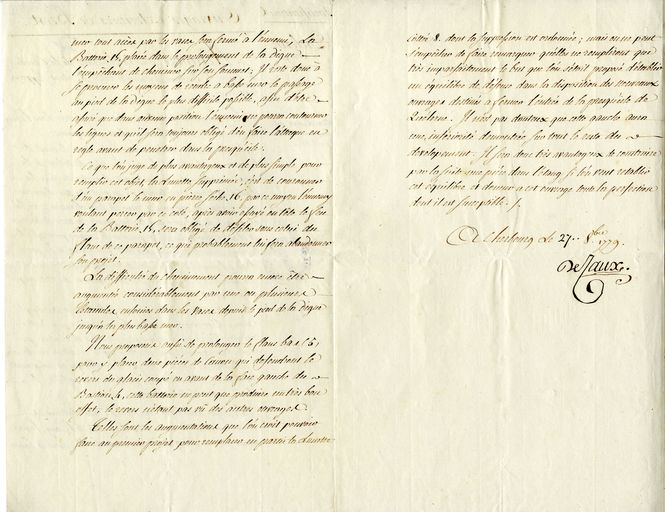 mer tout accès par les vases sera fermé à l'ennemi; La
Batterie 15, placée dans le prolongement de la digue
l'empêchant de cheminer sur son sommet. Il reste donc à
se procurer les moyens de rendre à basse mer le passage
au pied de la digue le plus difficile possible, afin d'être
assuré que dans aucune partie l'ennemi ne pourra contourner
les lignes et qu'il sera toujours obligé d'en faire l'attaque en
règle avant de pénétrer dans la presqu'île.
Ce que l'on juge de plus avantageux et de plus simple pour
remplir cet objet, la Lunette supprimée, c'est de contourner
d'un parapet le mur en pierres sèches, 16, par ce moyen l'ennemy
voulant percer par ce coté, après avoir essuyé en tête le feu
de la Batterie, 15, sera obligé de défiler sous celui du
flanc de ce parapet, ce qui probablement lui fera abandonner
son projet.
La difficulté du cheminement pourra encore être
augmentée considérablement par une ou plusieurs
Estacades enfoncées dans les vases depuis le pied de la digue
jusqu'à la plus basse mer.
Nous proposons aussi de prolonger le flanc bas 15
pour y placer deux pièces de Canon qui défendront le
revers du glacis coupé en avant de la face gauche du
Bastion 4, cette batterie ne peut que produire un très bon
effet, le revers n'étant pas vû des autres ouvrages.
Telles sont les augmentations que l'on croit pouvoir
faire au premier projet pour remplacer en partie la Lunette
cottée 8. dont la suppression est ordonnée; mais on ne peut
s'empêcher de faire remarquer qu'elles ne rempliront que
très imparfaitement le but que l'on s'était proposé d'établir
un équilibre de défense dans la disposition des nouveaux
ouvrages destinés à fermer l'entrée de la presqu'île de
Quelern. Il n'est pas douteux que cette gauche aura
une infériorité démontrée sur tout le reste du
développement. Il sera donc très avantageux de construire
par la suite une pièce dans l'étang si l'on veut rétablir
cet équilibre et donner à cet ouvrage toute la perfection
dont il est susceptible. /.
A Cherbourg Le 27. 8bre 1779.
DeCaux.